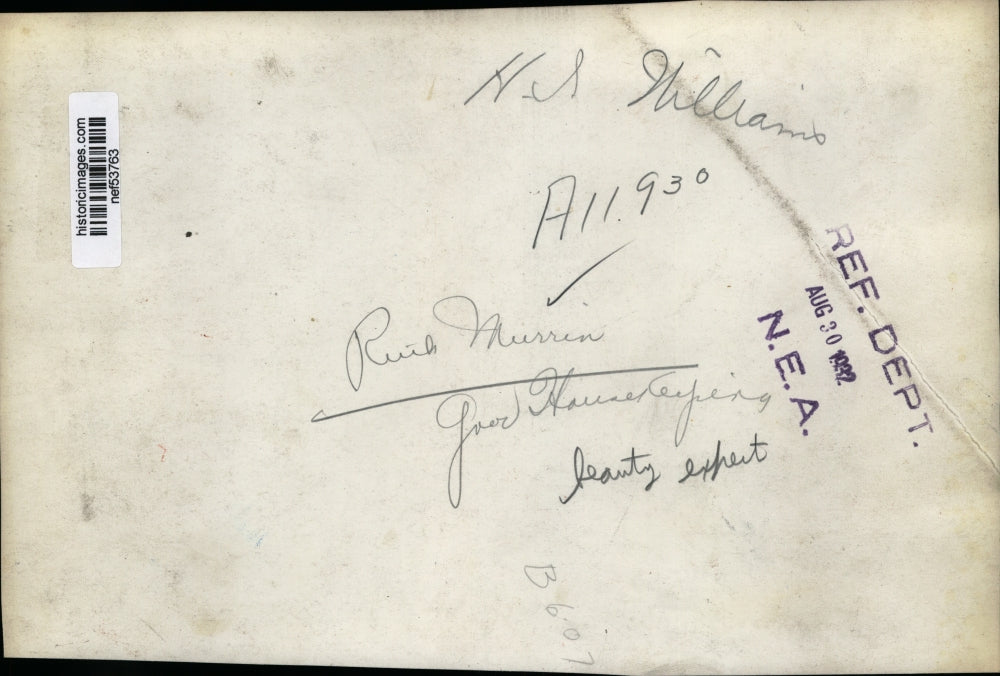 H. S. Williams
A11930
historicimages.com
nef53763
REF. DEPT.
AUG 30 1932
N.E.A.
Ruth Murrin
Good Housekeeping
beauty expert
B607